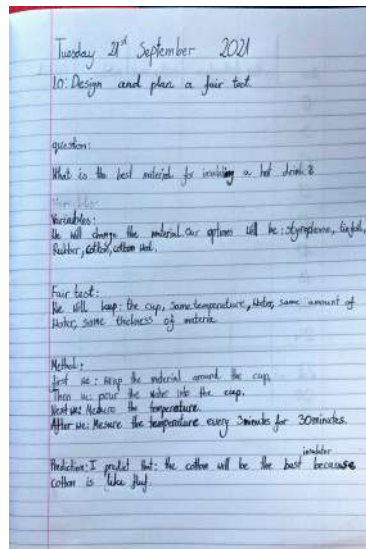 Tuesday 21st September 2021
Lo: Design and plan a fair test.
question:
What is the best material for insulating a hot drink?
Variables:
We will change the material. Our options will be: styrophome, tinfoil,
Rubber, cotton, cotton wool.
Fair test:
We will keep: the cup, same temperature, Water, same amount of
Water, same thickness of materia
Method:
first we: Wrap the material around the cup,
Then we: pour the water into the cup.
Next we: Mesure the temperature.
After we: Mesure the temperature every 3minutes for 30minutes.
insulator
Prediction: I predict that: the cotton will be the best because
cotton is like fluf.